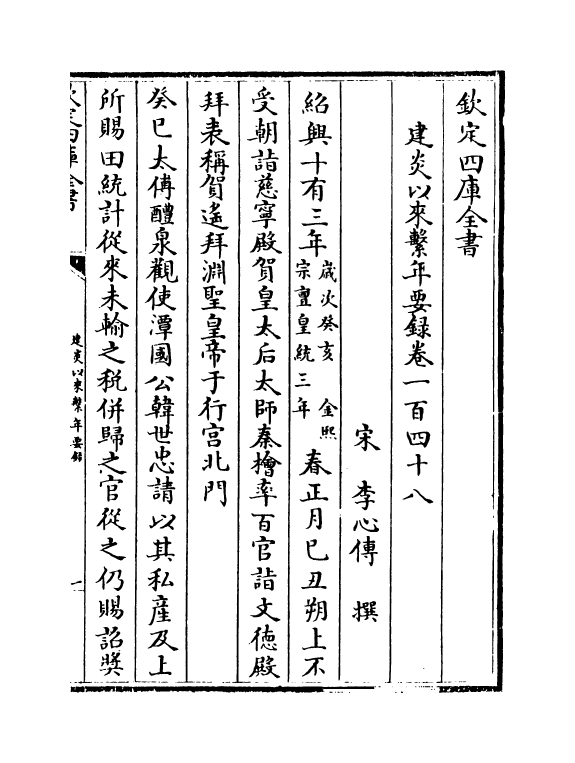 欽定四庫全書
建炎以來繫年要録卷一百四十八
宋 李心傳 撰
紹興十有三年歲次癸亥 金熙宗亶皇統三年春正月己丑朔上不
受朝詣慈寧殿賀皇太后太師秦檜率百官詣文德殿
拜表稱賀遙拜淵聖皇帝于行宫北門
癸巳太傅醴泉觀使潭國公韓世忠請以其私產及上
所賜田統計從來未輸之税併歸之官從之仍賜詔奬
欽定四庫全書
建炎以來繫年要録
一